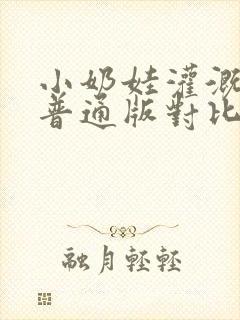 小奶娃灌溉
普通版對比
融月輕輕